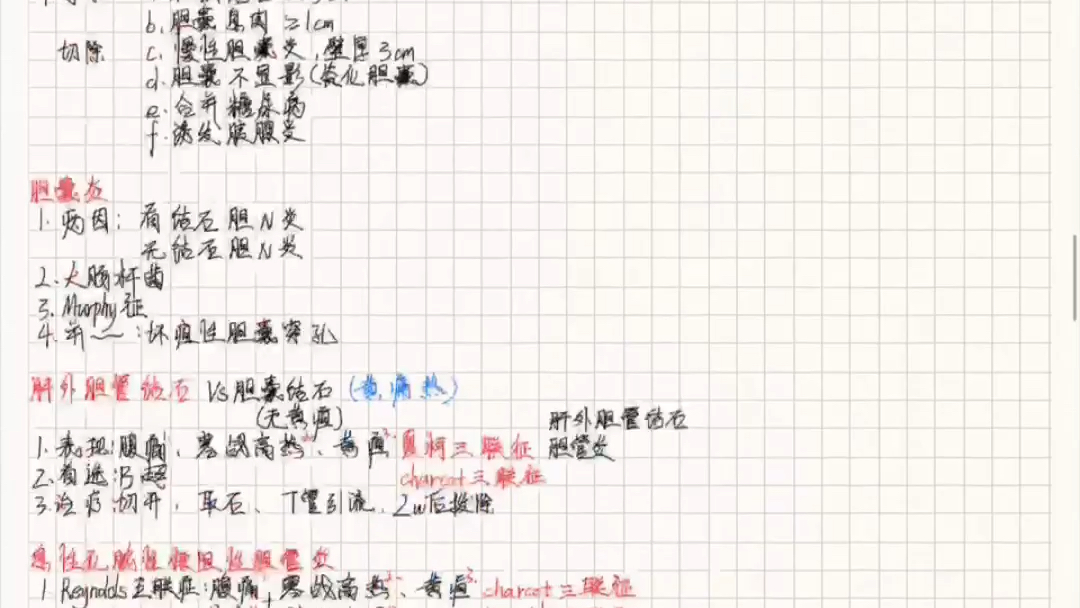 b. 胆囊息肉 ≥1cm
切除 c. 慢性胆囊炎,壁厚3cm
d. 胆囊不显影(瓷化胆囊)
e. 合并糖尿病
f. 诱发胰腺炎
胆囊炎
1. 病因: 有结石胆N炎
无结石胆N炎
2. 大肠杆菌
3. Murphy征
4. 并~~:坏疽性胆囊穿孔
肝外胆管结石 Vs 胆囊结石 (黄.痛.热)
(无黄疸)
肝外胆管结石
1. 表现:腹痛1、寒战高热2、黄疸3. 夏柯三联征 胆管炎
2. 首选:B超 charcot三联征
3. 治疗:切开,取石、T管引流.2w后拔除
急性化脓性梗阻性胆管炎
1 Reynolds五联症:腹痛1,寒战高热2、黄疸3. charcot三联征